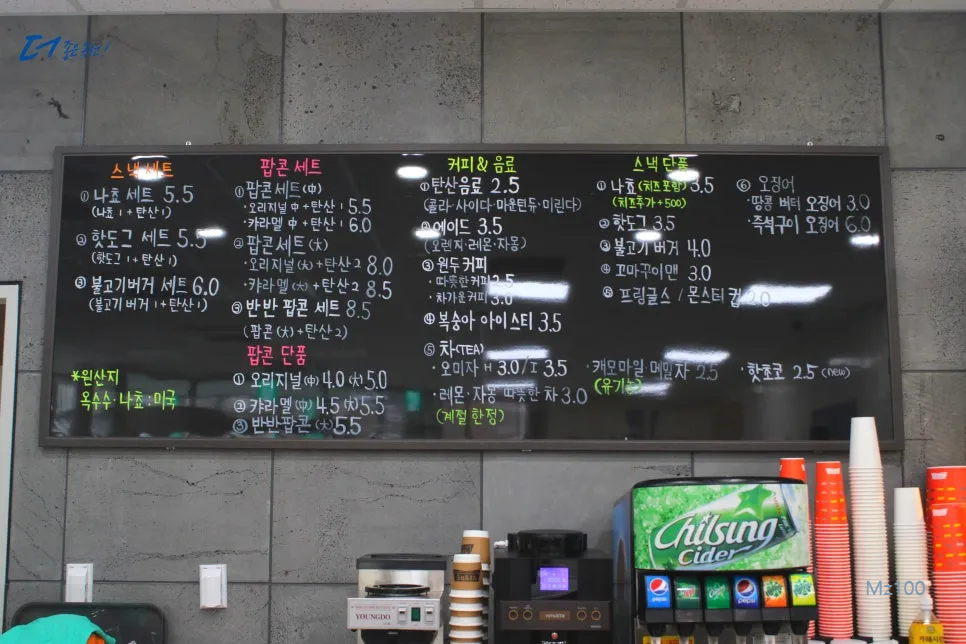 더 좋은
스낵 세트
① 나쵸 세트 5.5
(나쵸 1 + 탄산 1)
② 핫도그 세트 5.5
(핫도그 1 + 탄산 1)
③ 불고기버거 세트 6.0
(불고기 버거 1 + 탄산 1)
*원산지
옥수수·나쵸 : 미국
팝콘 세트
① 팝콘세트 (中)
·오리지널 中 + 탄산 1 5.5
·캬라멜 中 + 탄산 1 6.0
② 팝콘세트 (大)
·오리지널 (大) + 탄산 2 8.0
·캬라멜 (大) + 탄산 2 8.5
③ 반반 팝콘 세트 8.5
(팝콘 (大) + 탄산 2)
팝콘 단품
① 오리지널 (中) 4.0 (大) 5.0
② 캬라멜 (中) 4.5 (大) 5.5
③ 반반팝콘 (大) 5.5
커피 & 음료
① 탄산음료 2.5
(콜라·사이다·마운틴듀·미린다)
② 에이드 3.5
(오렌지·레몬·자몽)
③ 원두커피
·따뜻한커피 2.5
·차가운커피 3.0
④ 복숭아 아이스티 3.5
⑤ 차(TEA)
·오미자 H 3.0 / I 3.5
·레몬·자몽 따뜻한 차 3.0
(계절 한정)
·캐모마일·메밀차 2.5
(유기농)
·핫쵸코 2.5 (new)
스낵 단품
① 나쵸 (치즈 포함) 3.5
(치즈추가 +500)
② 핫도그 3.5
③ 불고기 버거 4.0
④ 꼬마꾸이맨 3.0
⑤ 프링글스 / 몬스터 칩 2.0
⑥ 오징어
·땅콩 버터 오징어 3.0
·즉석구이 오징어 6.0
Chilsung
Cider
pepsi
pepsi
YOUNGDO
Mz100